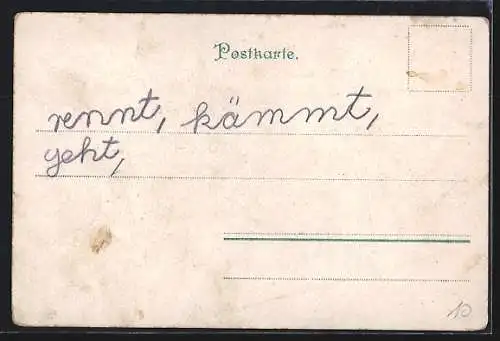 Postkarte.
rennt, kämmt,
geht,
10